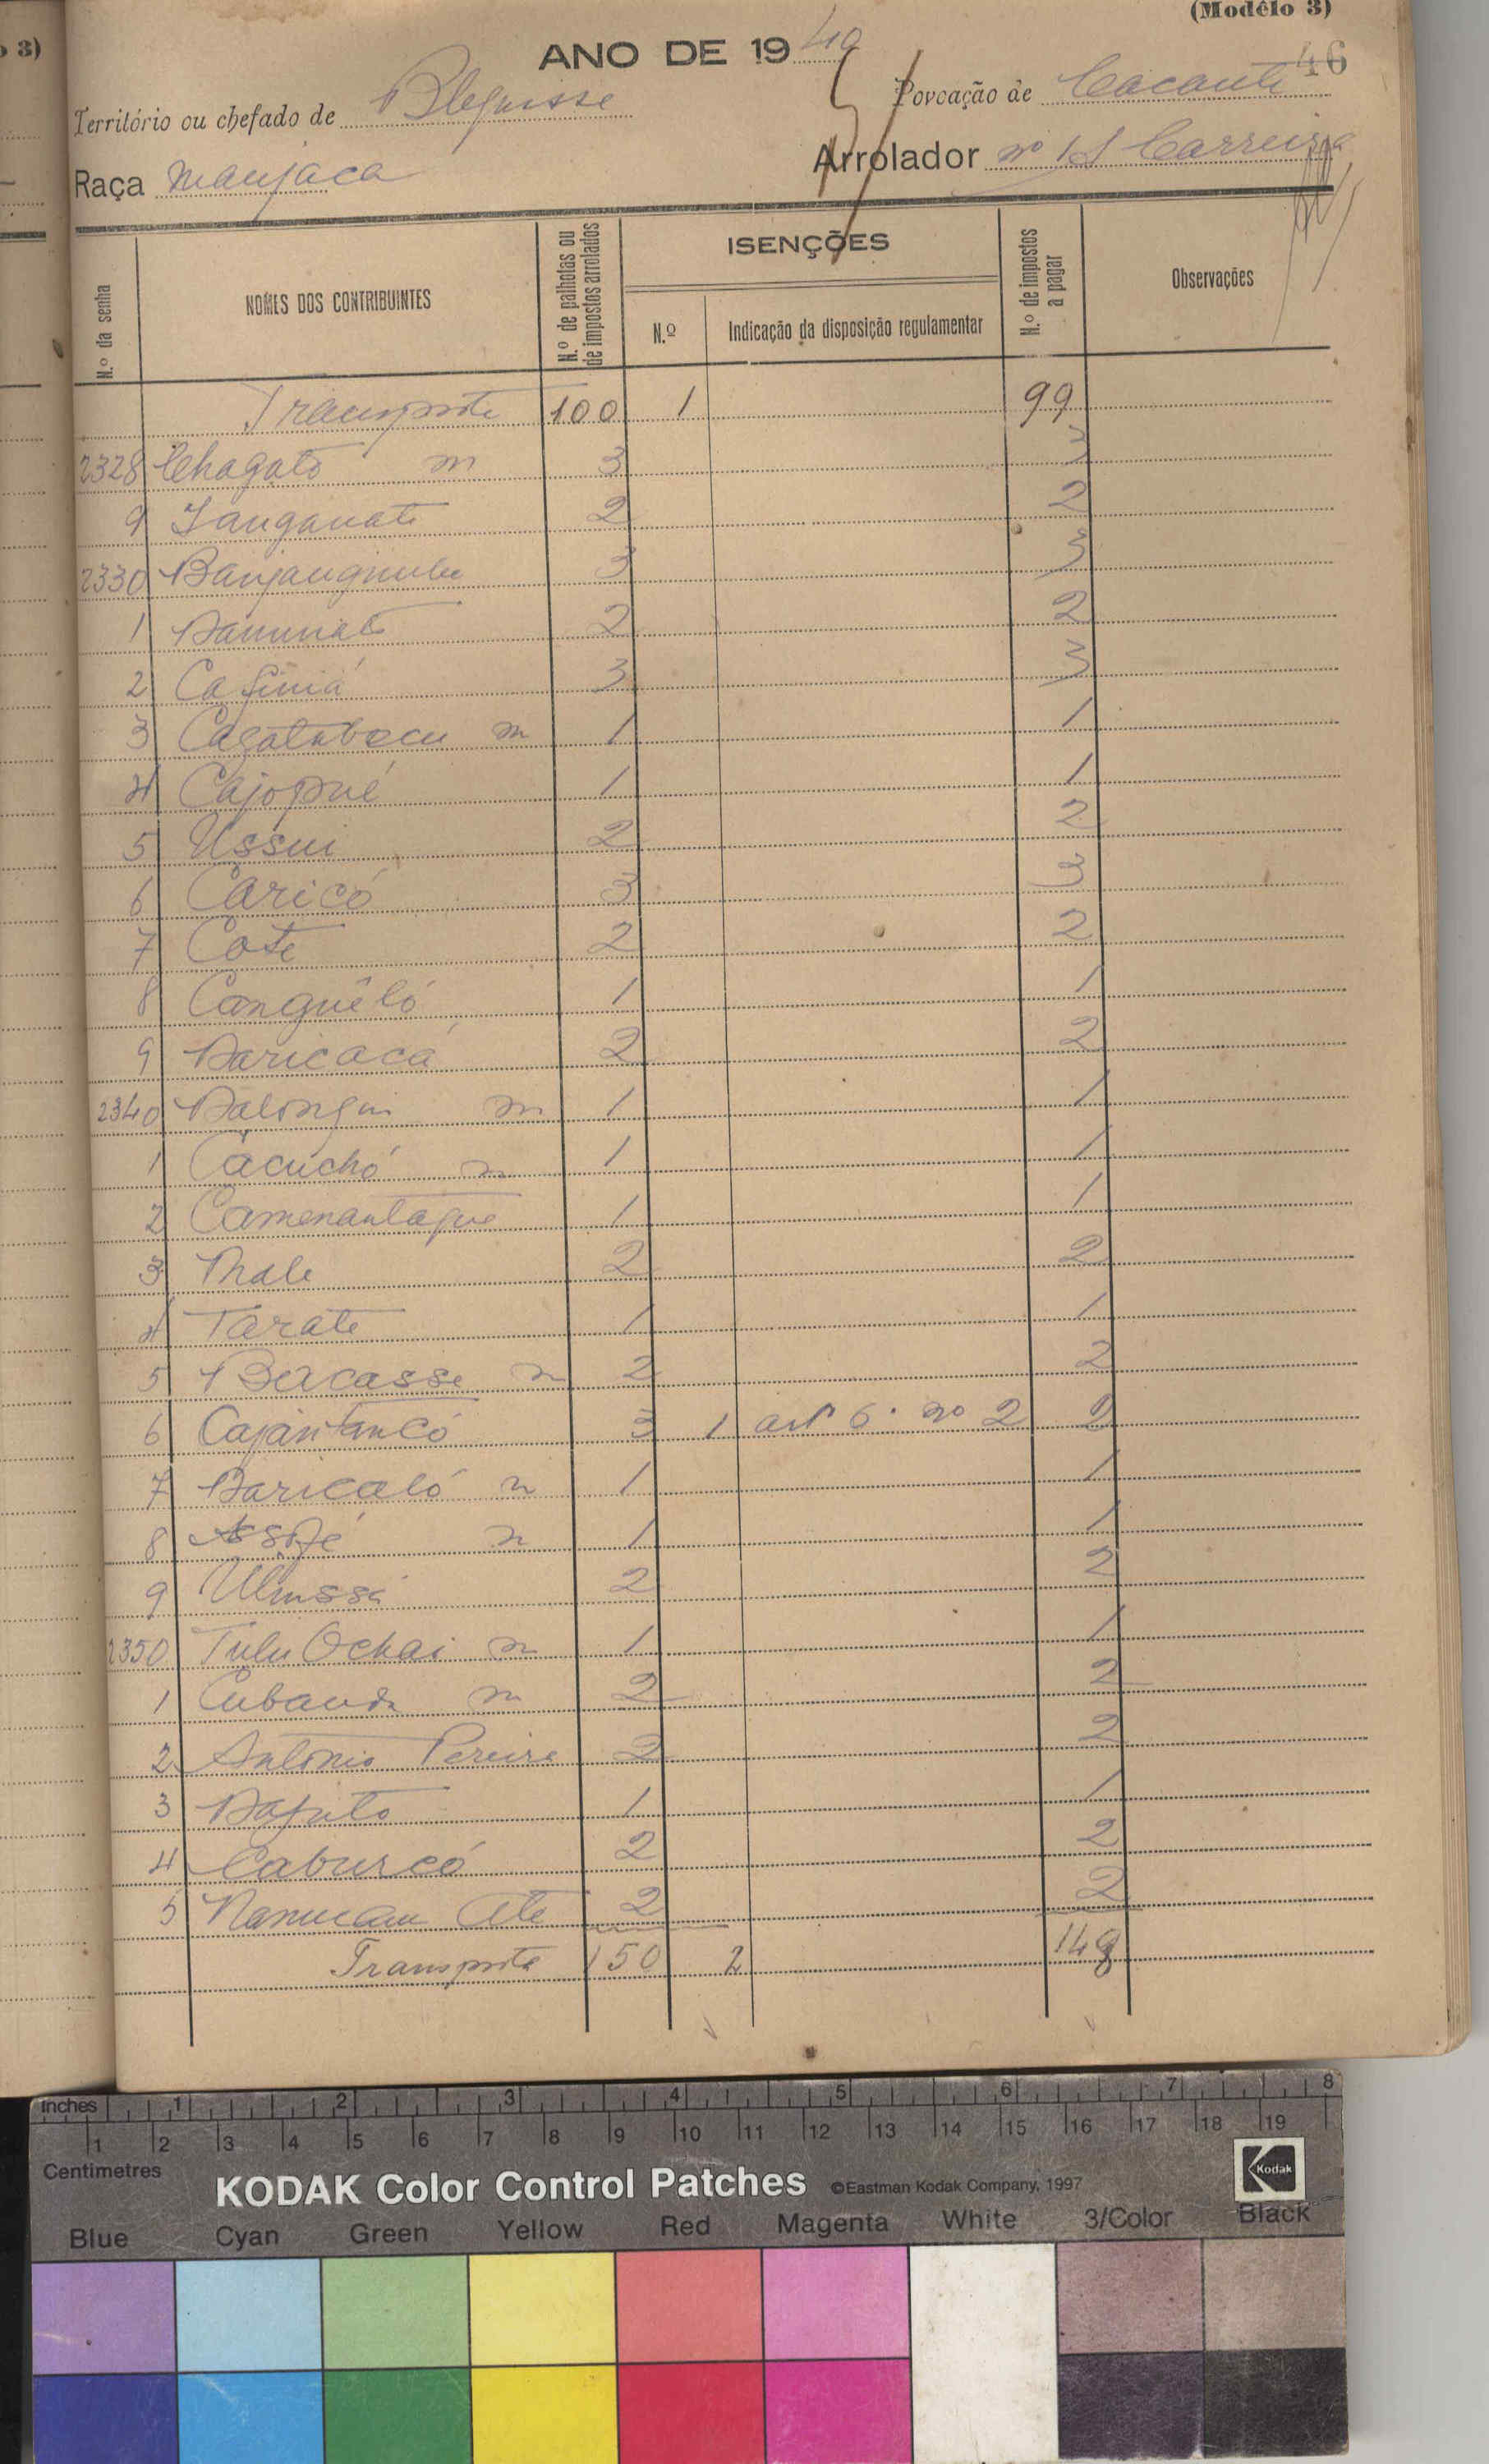 3)
(Modêlo 3)
ANO DE 1940
46
Território ou chefado de Bleguisse
Povoação de Cacante
Raça manjaca
Arrolador nº Carreira
N.º da senha
NOMES DOS CONTRIBUINTES
N.º de palhotas ou de impostos arrolados
ISENÇÕES
N.º
Indicação da disposição regulamentar
N.º de impostos a pagar
Observações
Transporte 100 1 99
2328 Chagato m 3 3
9 2 2
2330 3 3
1 2 2
2 Cafiniá 3 3
3 m 1 1
4 Cajopué 1 1
5 Ussui 2 2
6 Caricó 3 3
7 Cote 2 2
8 Canguêló 1 1
9 Daricaca 2 2
2340 m 1 1
1 Cacuchó m 1 1
2 Camenantaque 1 1
3 Male 2 2
4 Tarate 1 1
5 Bacasse m 2 2
6 3 1 artº 6º nº 2 2
7 Daricaló m 1 1
8 m 1 1
9 2 2
2350 Tulu Ochai m 1 1
1 m 2 2
2 António Pereira 2 2
3 1 1
4 Caburcó 2 2
5 2 2
Transporte 150 2 148
inches 1 2 3 4 5 6 7 8
1 2 3 4 5 6 7 8 9 10 11 12 13 14 15 16 17 18 19
Centimetres
KODAK Color Control Patches ©Eastman Kodak Company, 1997 Kodak
Blue Cyan Green Yellow Red Magenta White 3/Color Black